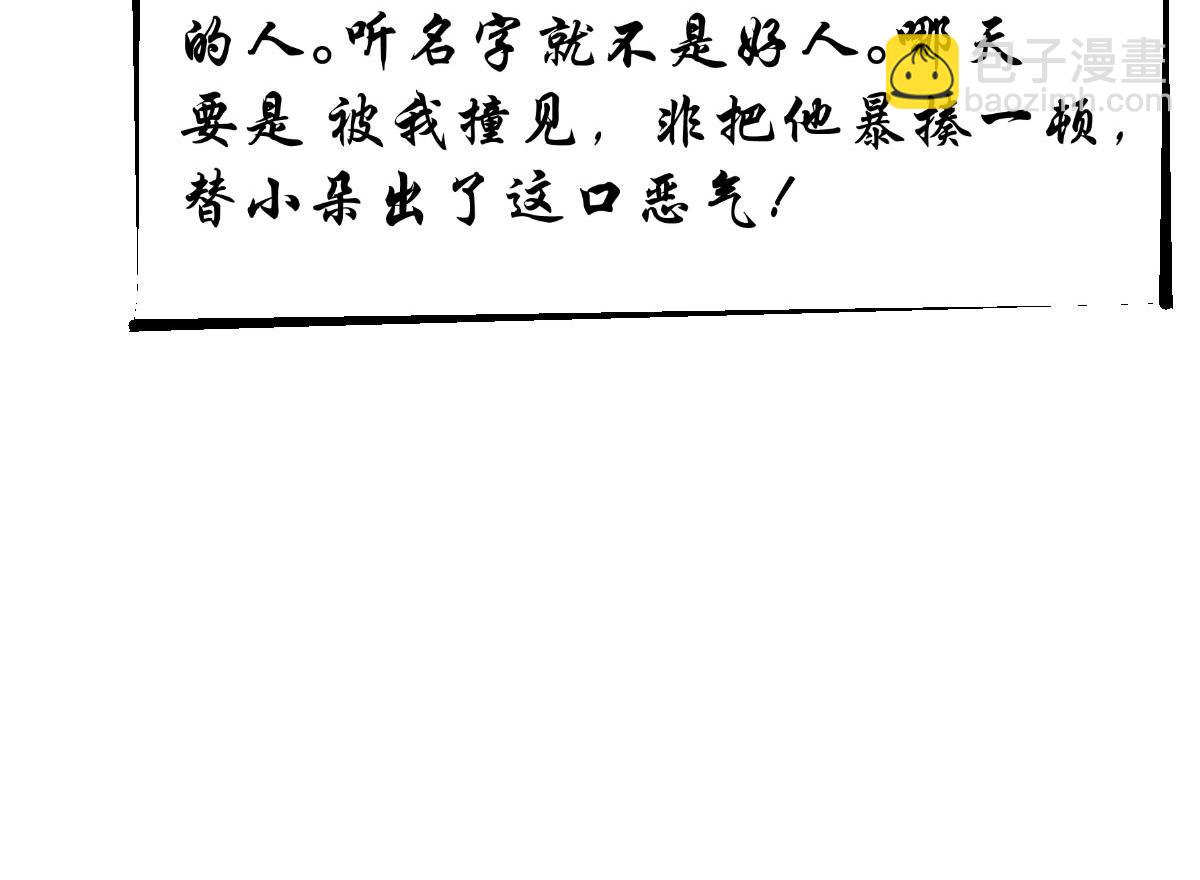 的人。听名字就不是好人。哪天
包子漫畫
baozimh.com
要是被我撞见，非把他暴揍一顿，
替小朵出了这口恶气！